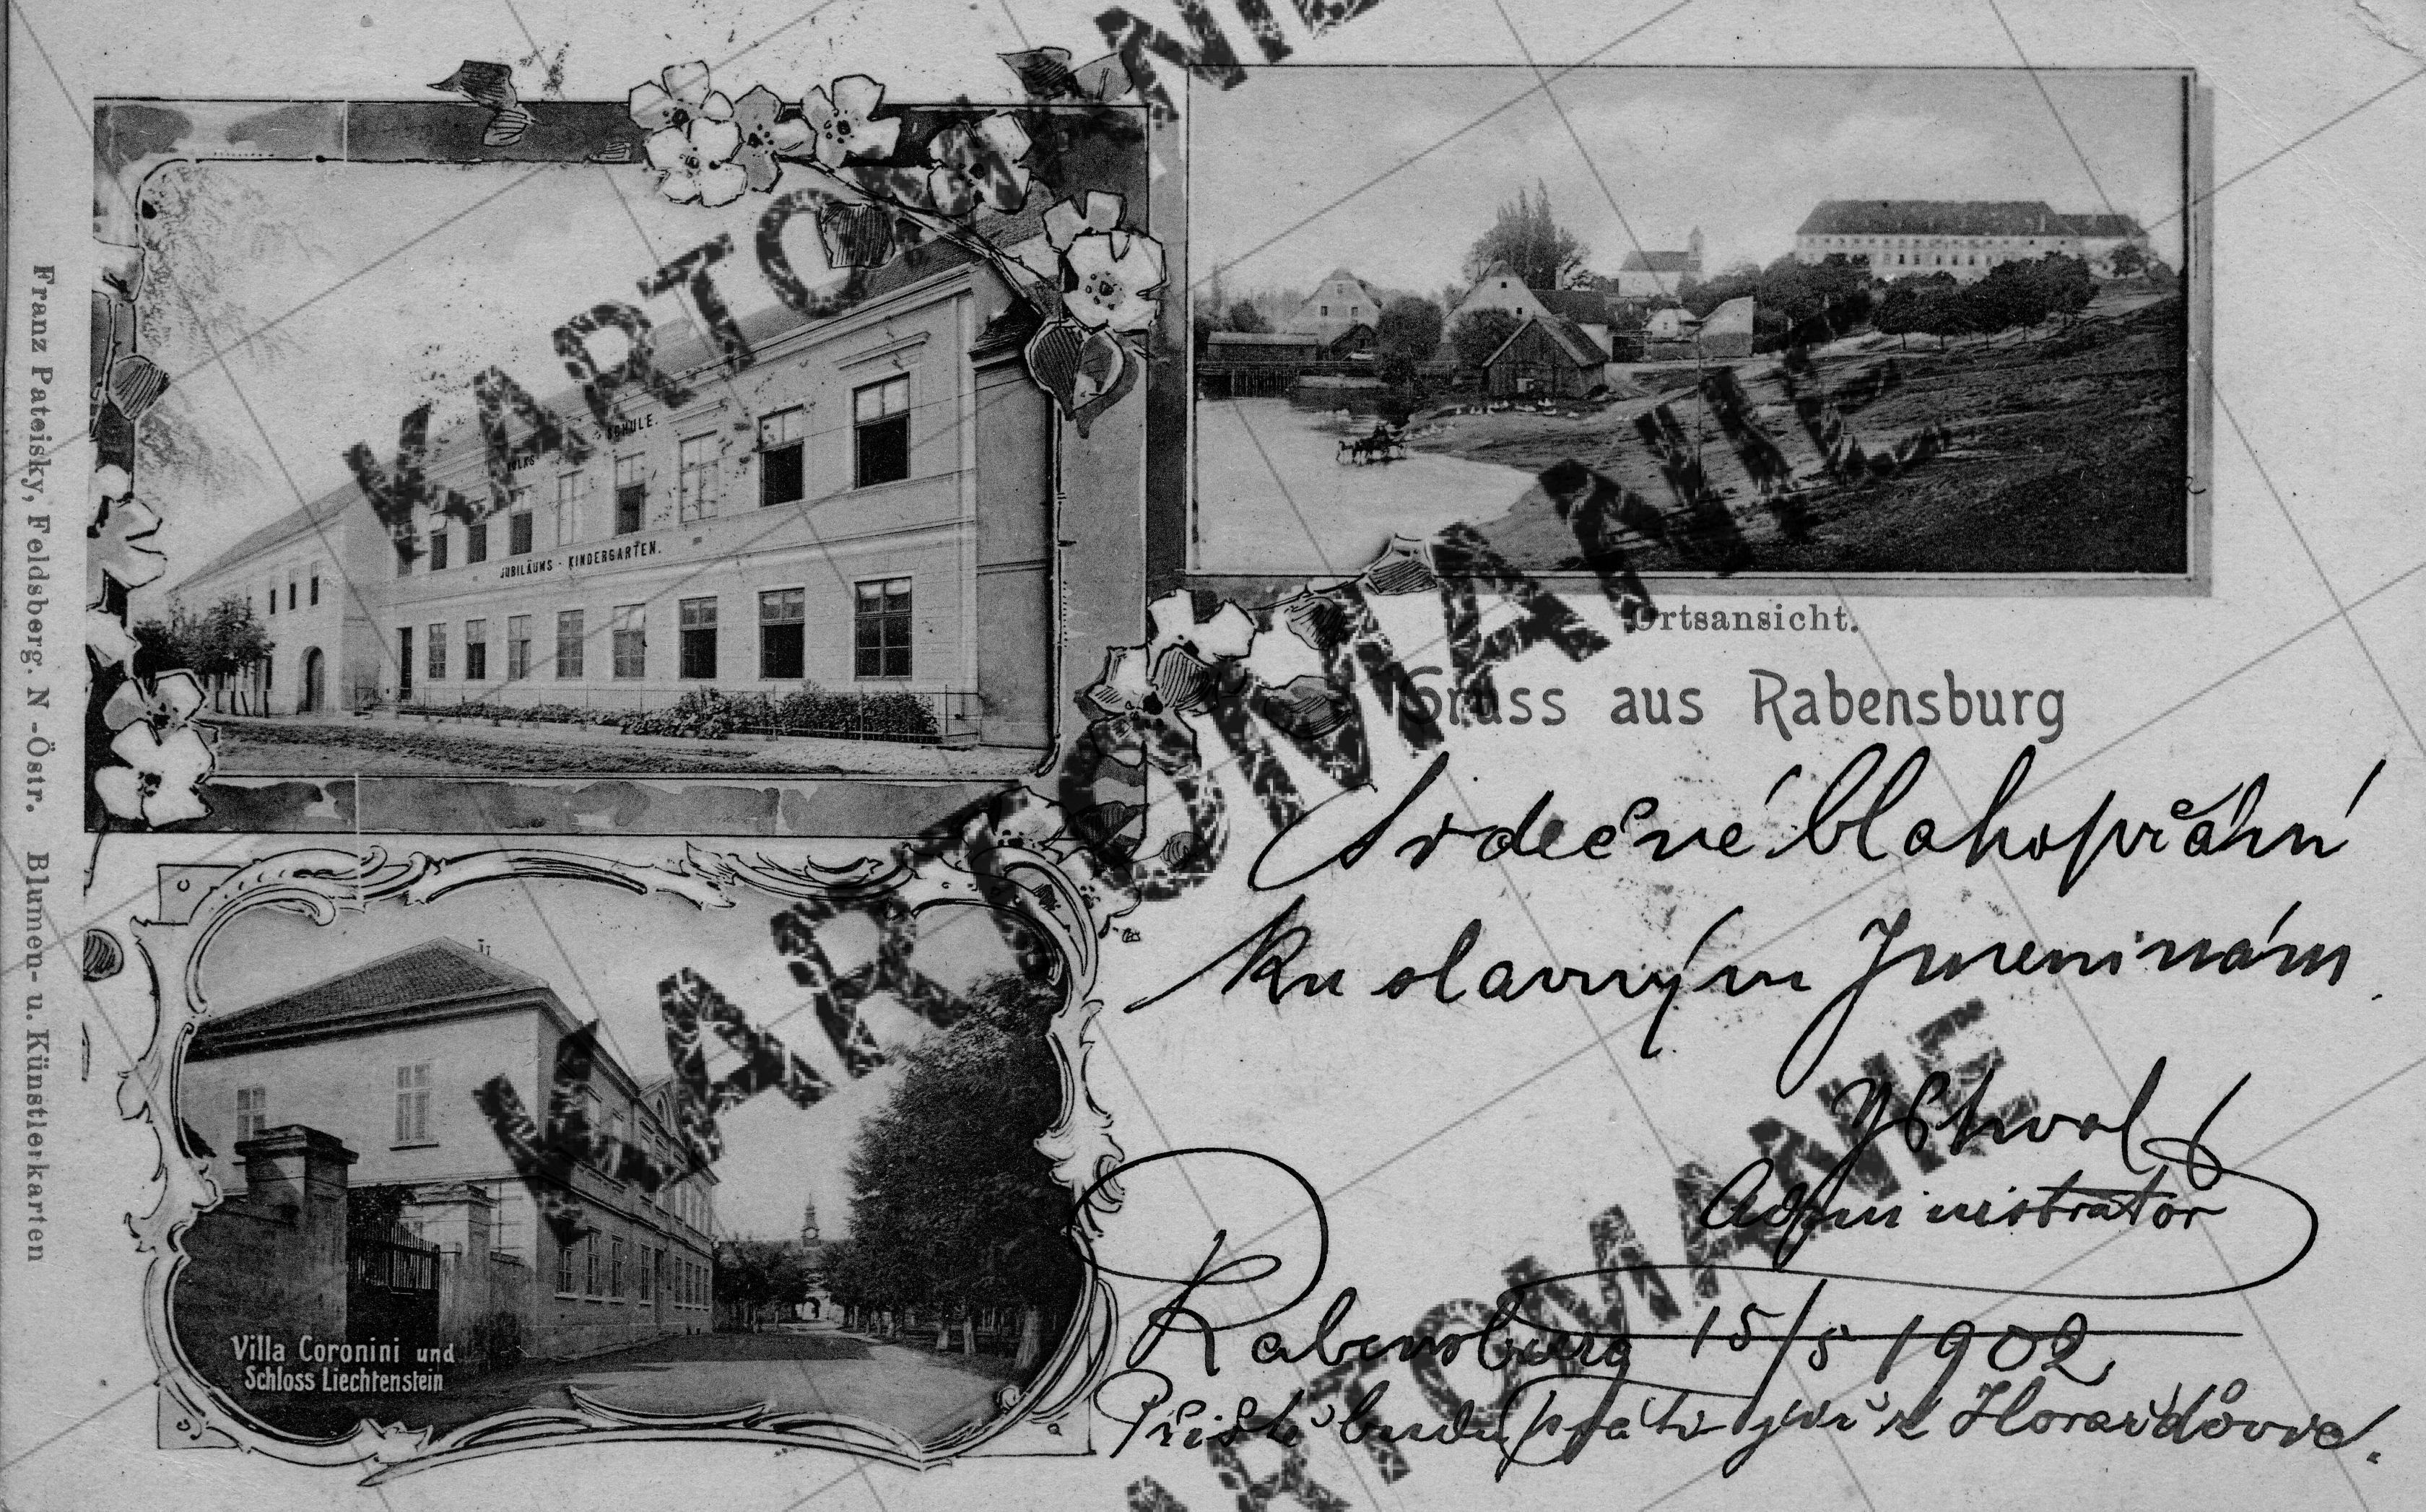 Franz Pateisky, Feldsberg. N -Östr. Blumen- u. Künstlerkarten
VOLKS - SCHULE.
JUBILÄUMS - KINDERGARTEN.
Ortsansicht.
Gruss aus Rabensburg
Srdečné blahopřání
ku slavným Jmeninám
Administrator
Rabensburg 15/5 1902
Příště budu psáti již z Horažďovic.
Villa Coronini und
Schloss Liechtenstein
KARTOMANIE
KARTOMANIE
KARTOMANIE